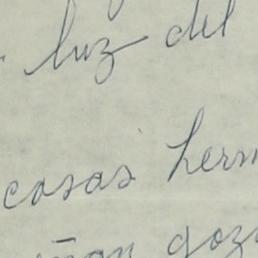 luz del
casas herm
iñan goza